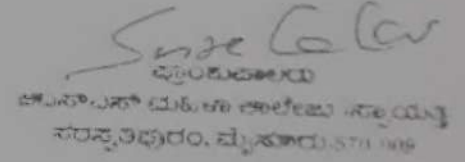 ಪ್ರಾಂಶುಪಾಲರು
ಜೆಎಸ್ಎಸ್ ಮಹಿಳಾ ಕಾಲೇಜು ಸ್ವಾಯತ್ತ
ಸರಸ್ವತಿಪುರಂ, ಮೈಸೂರು-570 009